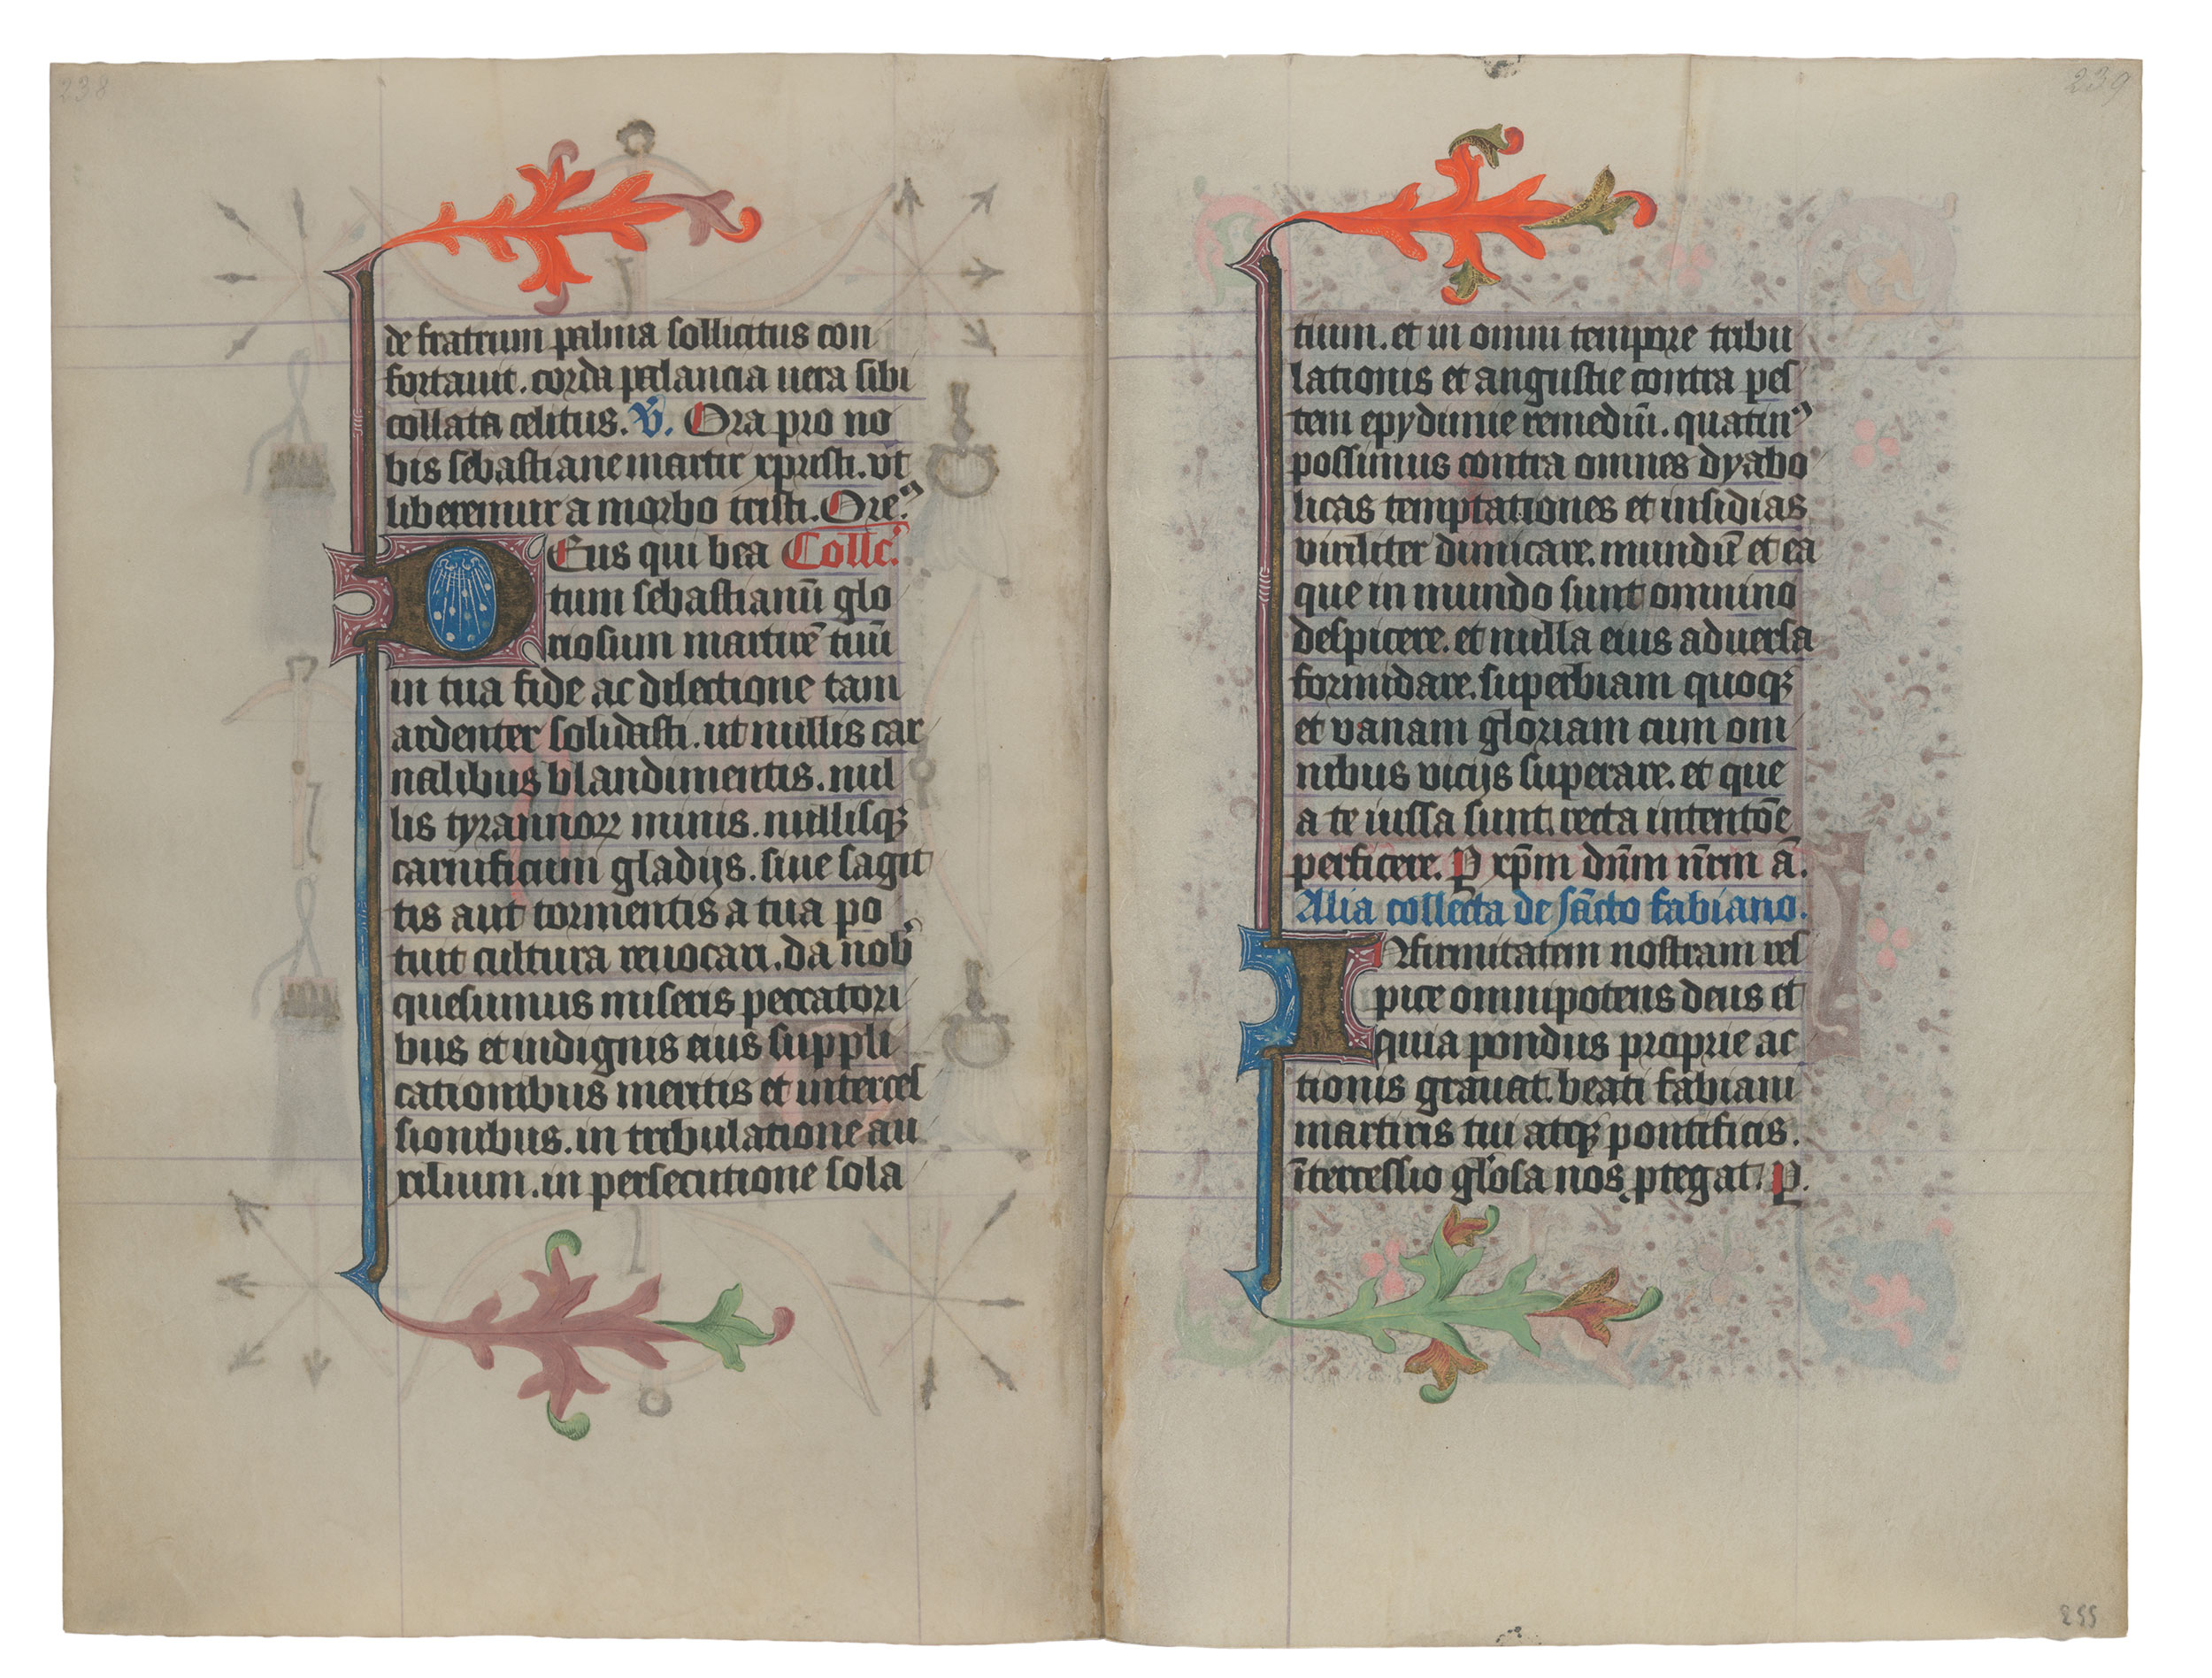 238
de fratrum palma sollicitus con
fortauit. corda palancia uera sibi
collata celitus. V̓. Ora pro no
bis sebastiane martir xpristi. vt
liberemur a morbo tristi. Ore᷒.
Eus qui bea Collc̄.
tum sebastianū glo
riosum martirē tuū
in tua fide ac dilectione tam
ardenter solidasti. ut nullis car
nalibus blandimentis. nul
lis tyrannoꝝ minis. nullisqꝫ
carnificum gladijs. siue sagit
tis aut tormentis a tua po
tuit cultura reuocari. da nob̓
quesumus miseris peccatori
bus et indignis eius suppli
cationibus meritis et interces
sionibus. in tribulatione au
xilium. in persecutione sola
239
tium. et in omni tempore tribu
lationis et angustie contra pes
tem epydimie remediū. quatinꝰ
possimus contra omnes dyabo
licas temptationes et insidias
uiriliter dimicare. mundū et ea
que in mundo sunt omnino
despicere. et nulla eius aduersa
formidare. superbiam quoqꝫ
et vanam gloriam cum om
nibus vicijs superare. et que
a te iussa sunt. recta intentōe
perficere. P xp̄m dn̄m nr̄m ā.
Alia collecta de sācto fabiano.
INfirmitatem nostram res
pice omnipotens deus et
quia pondus proprie ac
tionis grauat. beati fabiani
martiris tui atqꝫ pontificis.
ītercessio gl̓osa nos ꝓtegat. P.
255